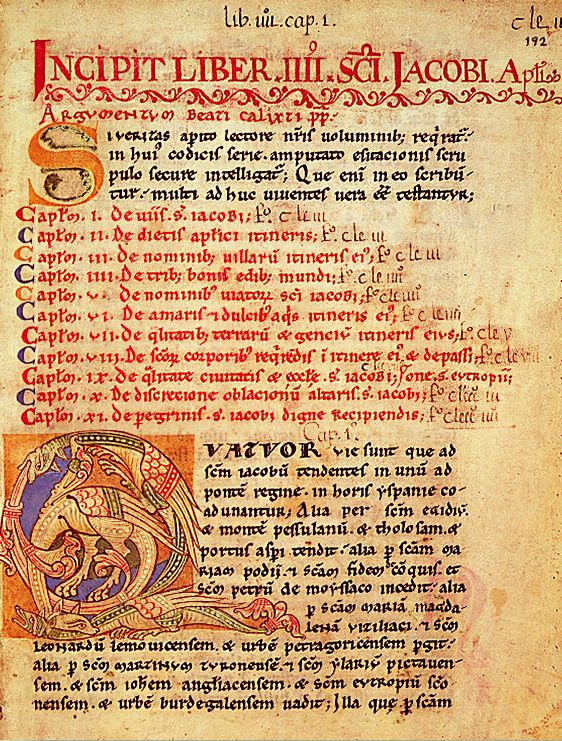 lib. iiii. cap. 1.
c le ii
192
INCIPIT LIBER .IIII. SCI. JACOBI. Apli.
Argumentum beati calixti pp.
Si veritas apito lectore nris voluminib; reqrat.
in hui' codicis serie. amputato esitacionis scru
pulo secure intelligat; Que eni in eo scribu
tur. multi ad huc viventes vera ee testantur;
Caplm. I. De viis. s. iacobi; fo. c le iii
Caplm. II. De dietis aplici itineris; fo. c le iii
Caplm. III. De nominib; villaru itineris ei'; fo. c le iiii
Caplm. IIII. De trib; bonis edib; mundi; fo. c le iiii
Caplm. v. De nominib' viator sci iacobi; fo. c le iiii
Caplm. VI. De amaris & dulcib' aqis itineris ei'; fo. c le iiii
Caplm. VII. De qlitatib; terraru & genciu itineris eius; fo. c le v
Caplm. VIII. De scor corporib' reqredis i itinere ei'. & de passi; fo. c le
Caplm. IX. De qlitate civitatis & eccle. s. iacobi; Jone. s. eutropii;
Caplm. X. De discrecione oblacionu altaris. s. iacobi;
Caplm. XI. De pegrinis. s. iacobi digne recipiendis;
Cap. 1.
QVATVOR vie sunt que ad
scm iacobu tendentes in unu ad
ponte regine. in horis yspanie co
adunantur; Alia per scm egidiu.
& monte pessulanu. & tholosam. &
portus aspi tendit. alia p scam ma
riam podii. & scam fidem coquis. et
scm petru de moyssaco incedit. alia
p scam maria magda
lena viziliaci. & scm
leonardu lemovicensem. & urbe petragoricensem pgit.
alia p scm martinum turonense. & scm ylariu pictaven
sem. & scm iohem angliacensem. & scm eutropiu sco
nensem. & urbe burdegalensem vadit; Illa que p scam